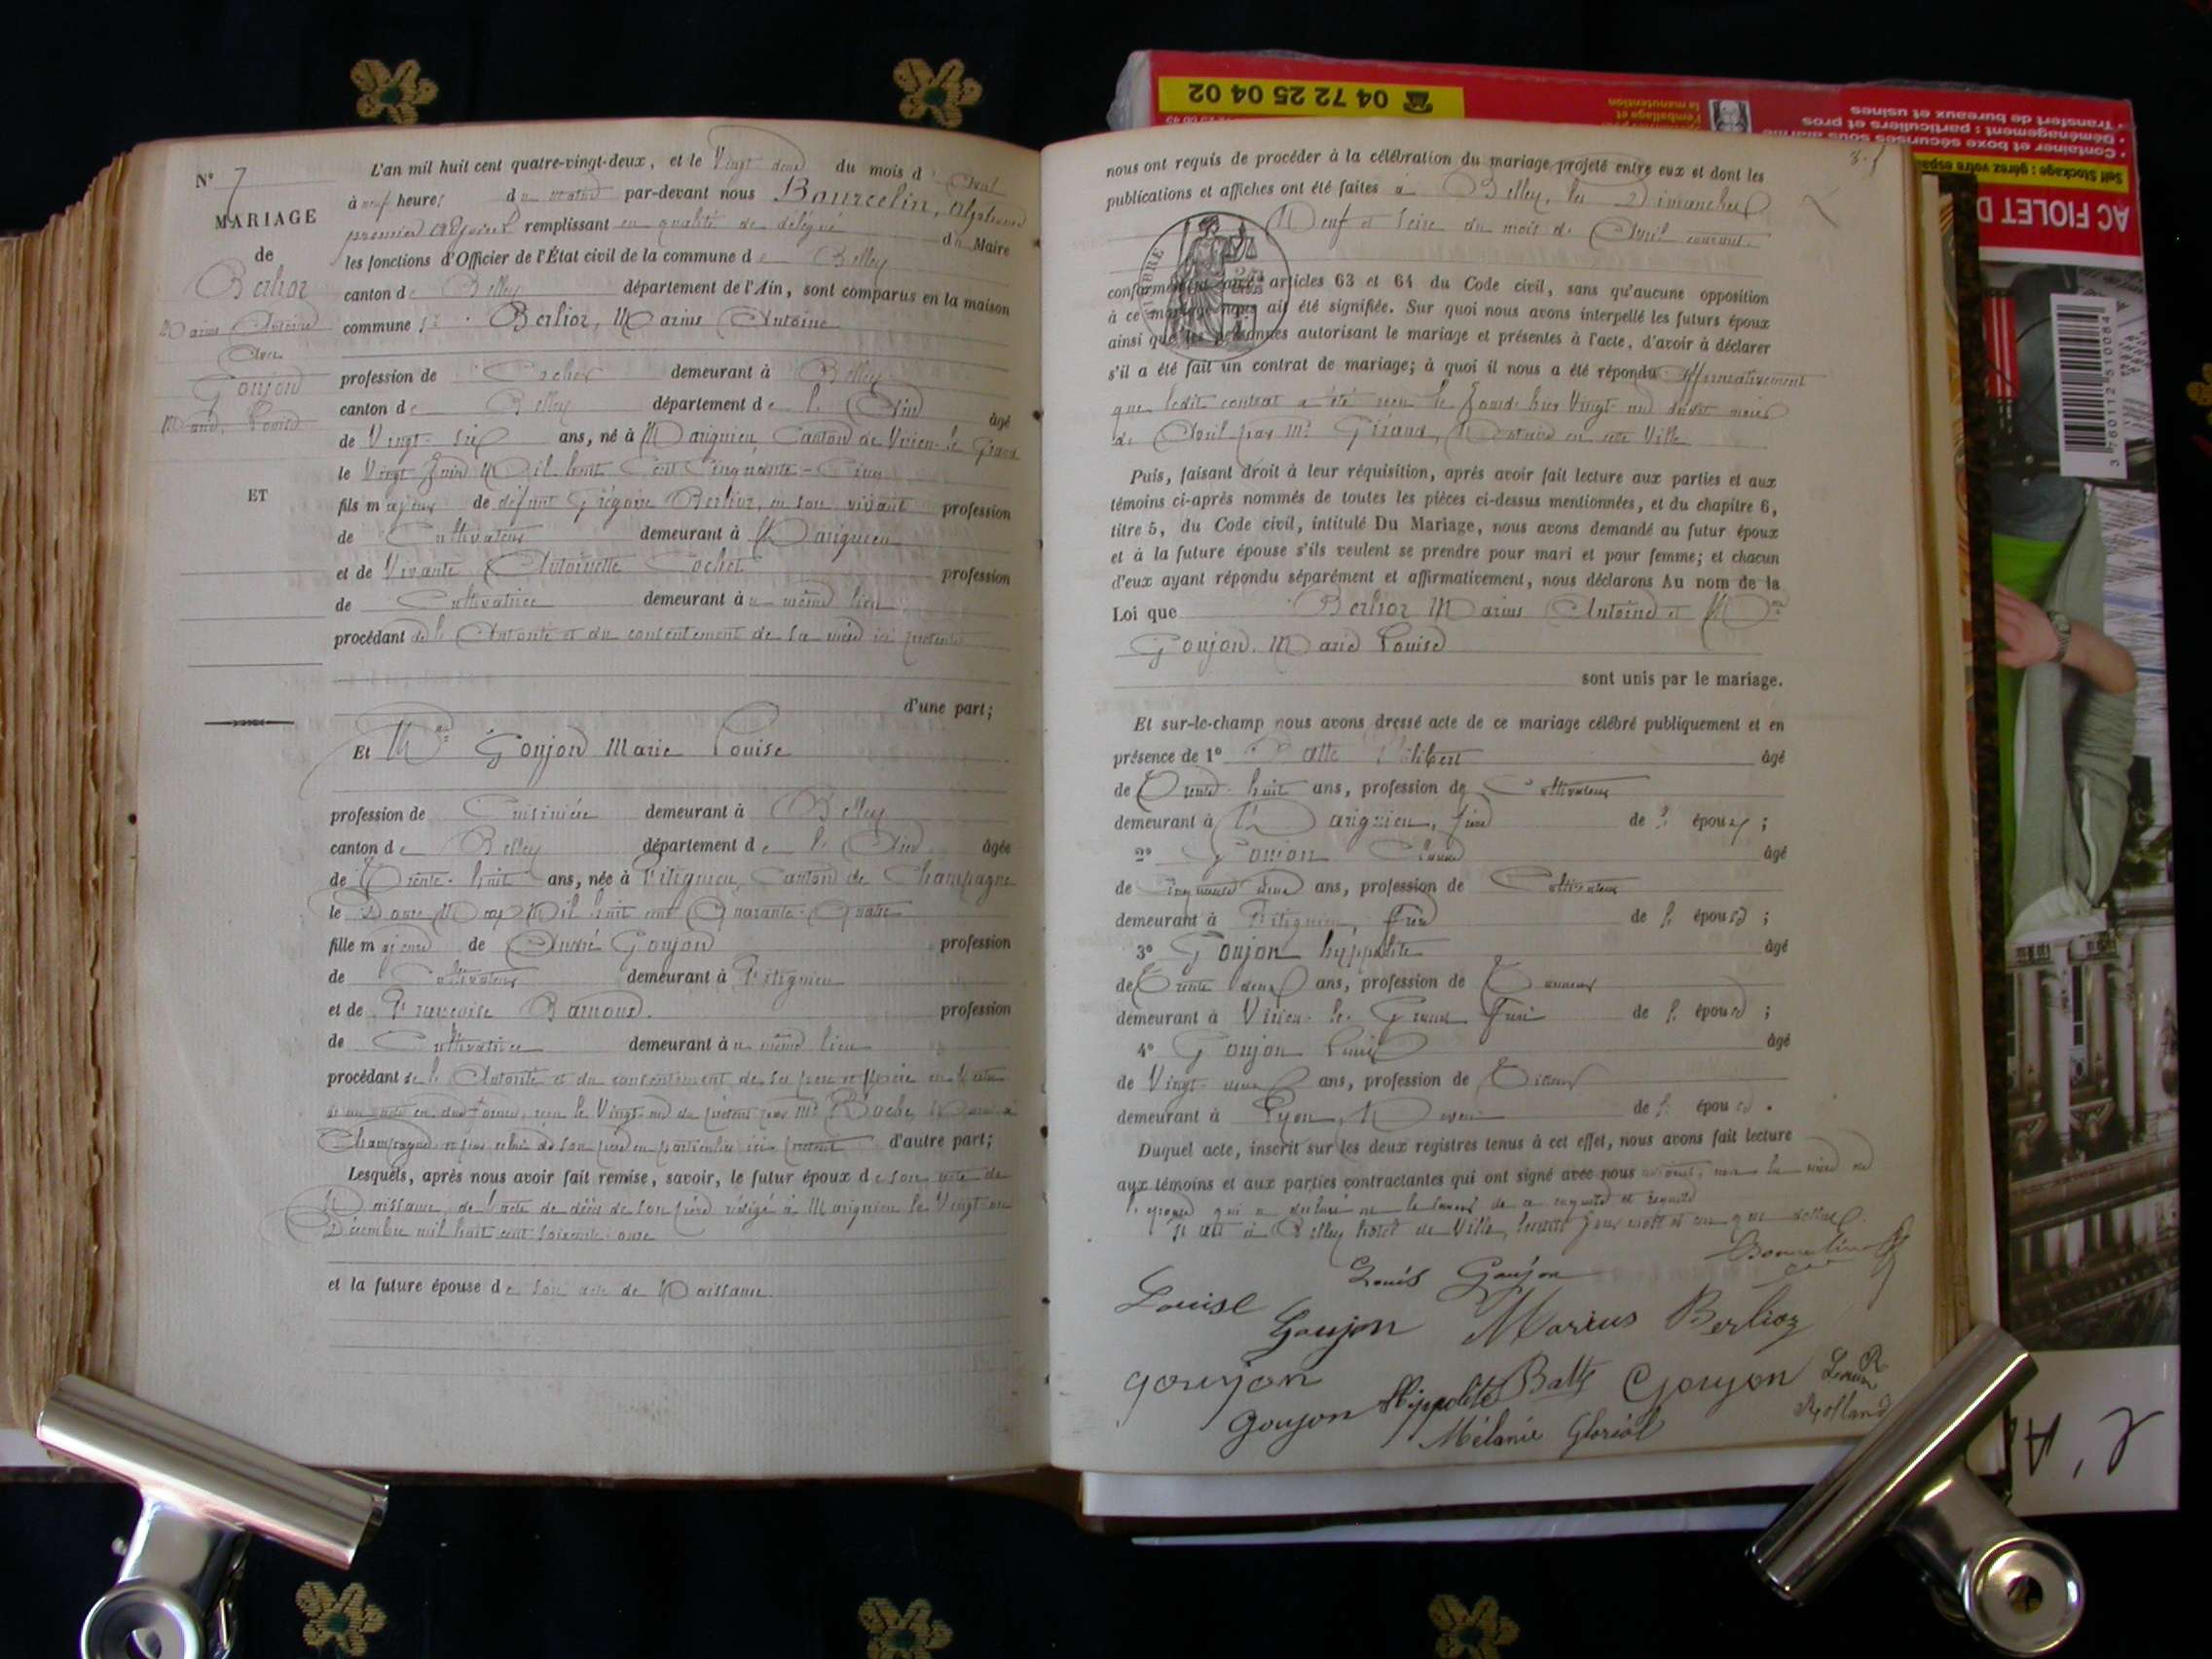 N° 7
MARIAGE
de
Berlioz
Marius Antoine
Avec
Goujon
Marie Louise
ET
L'an mil huit cent quatre-vingt-deux, et le Vingt deux du mois d'Avril
à neuf heures du matin par-devant nous Bourcelin, Alphonse
premier adjoint remplissant en qualité de délégué du Maire
les fonctions d'Officier de l'État civil de la commune de Belley
canton de Belley département de l'Ain, sont comparus en la maison
commune Berlioz, Marius Antoine
profession de Cocher demeurant à Belley
canton de Belley département de l'Ain âgé
de Vingt-six ans, né à Marignieu, Canton de Virieu-le-Grand
le Vingt Juin Mil huit Cent Cinquante-Cinq
fils majeur de défunt Grégoire Berlioz, en son vivant profession
de Cultivateur demeurant à Marignieu
et de Vivante Antoinette Cochet profession
de Cultivatrice demeurant au même lieu
procédant de l'Autorité et du consentement de sa mère ici présente
d'une part;
Et Mlle Goujon Marie Louise
profession de Cuisinière demeurant à Belley
canton de Belley département de l'Ain âgée
de Trente-huit ans, née à Vitignieu, Canton de Champagne
le Douze Mars Mil huit cent Quarante-Quatre
fille majeure de André Goujon profession
de Cultivateur demeurant à Vitignieu
et de Françoise Barnoud profession
de Cultivatrice demeurant au même lieu
procédant de l'Autorité et du consentement de ses père et mère en vertu
reçu le Vingt-un du présent par Me Roche, Notaire à
Champagne son père en particulier ici présent d'autre part;
Lesquels, après nous avoir fait remise, savoir, le futur époux de son acte de
Naissance, de l'acte de décès de son père rédigé à Marignieu le Vingt-un
Décembre mil huit cent soixante-onze
et la future épouse de son acte de Naissance.
nous ont requis de procéder à la célébration du mariage projeté entre eux et dont les
publications et affiches ont été faites à Belley, les Dimanches
Neuf et Seize du mois de Avril courant
TIMBRE
conformément aux articles 63 et 64 du Code civil, sans qu'aucune opposition
à ce mariage nous ait été signifiée. Sur quoi nous avons interpellé les futurs époux
ainsi que les personnes autorisant le mariage et présentes à l'acte, d'avoir à déclarer
s'il a été fait un contrat de mariage; à quoi il nous a été répondu affirmativement
que ledit contrat a été reçu le jour d'hier Vingt-un dudit mois
de Avril par Me Giraud, Notaire en cette Ville
Puis, faisant droit à leur réquisition, après avoir fait lecture aux parties et aux
témoins ci-après nommés de toutes les pièces ci-dessus mentionnées, et du chapitre 6,
titre 5, du Code civil, intitulé Du Mariage, nous avons demandé au futur époux
et à la future épouse s'ils veulent se prendre pour mari et pour femme; et chacun
d'eux ayant répondu séparément et affirmativement, nous déclarons Au nom de la
Loi que Berlioz Marius Antoine et Mlle
Goujon Marie Louise
sont unis par le mariage.
Et sur-le-champ nous avons dressé acte de ce mariage célébré publiquement et en
présence de 1° Batte Philibert âgé
de Trente-huit ans, profession de Cultivateur
demeurant à Marignieu, de l'époux;
2° Goujon âgé
de Cinquante deux ans, profession de Cultivateur
demeurant à Vitignieu, frère de l'épouse;
3° Goujon hyppolite âgé
de Trente deux ans, profession de Tanneur
demeurant à Virieu-le-Grand frère de l'épouse;
4° Goujon Louis âgé
de Vingt ans, profession de
demeurant à Lyon, Neveu de l'épouse.
Duquel acte, inscrit sur les deux registres tenus à cet effet, nous avons fait lecture
aux témoins et aux parties contractantes qui ont signé avec nous
l'époux qui a déclaré ne le savoir de ce enquise et requise
fait à Belley hôtel de Ville, lesdits jour mois et an que dessus.
Louis Goujon
Louise Goujon Marius Berlioz
goujon Batte Goujon Louis Rolland
Goujon Hippolite
Mélanie
04 72 25 04 02
l'emballage et
la manutention
• Container et boxe sécurisés sous alarme
• Déménagement : particuliers et pros
• Transfert de bureaux et usines
Self Stockage : gérez votre
AC FIOLET D
3 760112 510084